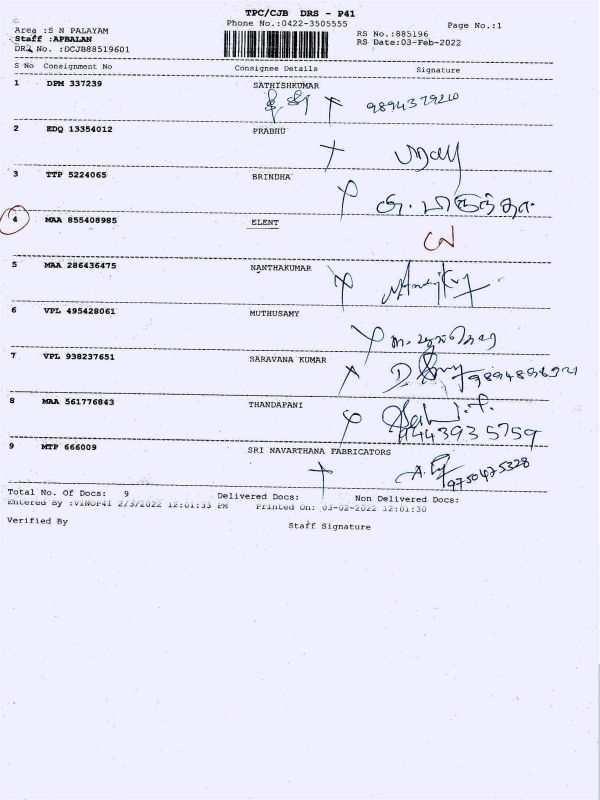 TPC/CJB DRS - P41
Phone No.:0422-3505555
Page No.:1
Area :S N PALAYAM
RS No.:885196
Staff :APBALAN
RS Date:03-Feb-2022
DRS No. :DCJB88519601
S No Consignment No Consignee Details Signature
1 DPM 337239 SATHISHKUMAR
9894379210
2 EDQ 13354012 PRABHU
3 TTP 5224065 BRINDHA
4 MAA 855408985 ELENT
5 MAA 286436475 NANTHAKUMAR
6 VPL 495428061 MUTHUSAMY
7 VPL 938237651 SARAVANA KUMAR
8 MAA 561776843 THANDAPANI
9443935759
9 MTP 666009 SRI NAVARTHANA FABRICATORS
9750475328
Total No. Of Docs: 9 Delivered Docs: Non Delivered Docs:
Entered By :VINOP41 2/3/2022 12:01:33 PM Printed On: 03-02-2022 12:01:30
Verified By Staff Signature